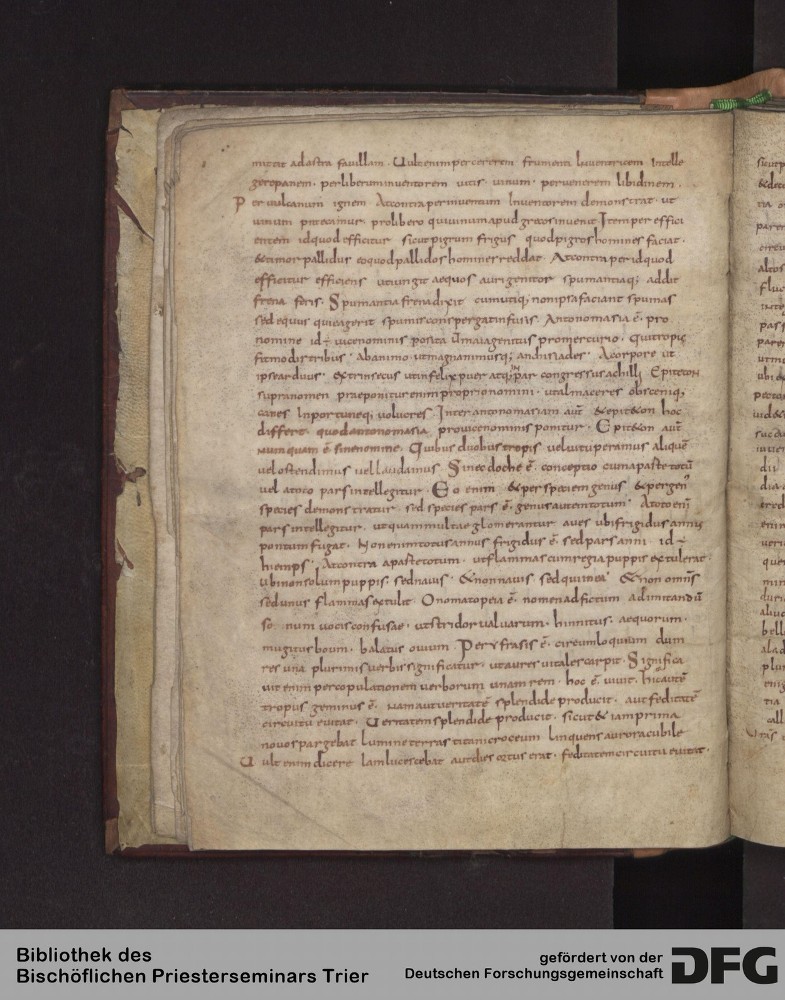 mittit ad astra favillam · Uult enim per cererem frumenti Inventricem Intelle
gere panem · per liberum inventorem vitis vinum · per venerem libidinem ·
Per vulcanum ignem Atcontra per inventum Inventorem demonstrat · ut
vinum precamur · prolibero qui vinum apud grecos invenit Item per effici
entem id quod efficitur sicut pigrum frigus quod pigros homines faciat ·
& timor pallidus eo quod pallidos homines reddat · Atcontra per id quod
efficitur efficiens ut iungit aequos auri genitor spumantiaq; addit
frena feris · Spumantia frena dixit cum utiq; non ipsa faciant spumas
sed equus qui ea gerit spumis conspergat infusis Antonomasia ē · pro
nomine id ÷ vice nominis posita Ut maia genitus pro mercurio · Qui tropis
fit modis tribus · ab animo ut magnanimusq; anchisiades · A corpore ut
ipse arduus · extrinsecus ut infelix puer atq; Inpar congressus achilli Epiteton
supra nomen praeponitur enim proprio nomini · ut alma ceres obsceniq;
canes Inportuneq; volucres · Inter antonomasiam aut̄ & epit&on hoc
differt · quod antonomasia pro vice nominis ponitur · Epit&on aut̄
nunquam ē sine nomine · Quibus duobus tropis vel vituperamus aliquē
vel ostendimus vel laudamus · Sinecdoche ē · conceptio cum a parte totū
vel a toto pars intellegitur · Eo enim & per speciem genus & per gen'
species demonstratur sed species pars ē · genus autem totum · A toto eni
pars intellegitur ut quam multae glomerantur aves ubi frigidus annus
pontum fugat · Non enim totus annus frigidus ē · sed pars anni · id ÷
hiemps · Atcontra a parte totum · ut flammas cum regia puppis extulerat ·
Ubi non solum puppis · sed navis · & non navis sed qui in ea · & non omnes
sed unus flammas extulit Onomatopeia ē · nomen adfictum ad imitandū
so num vocis confusae · ut stridor valvarum · hinnitus · aequorum ·
mugitus boum · balatus ovium · Perifrasis ē · circumloquium dum
res una plurimis verbis significatur · ut auras vitales carpit · Significa
vit enim per copulationem verborum unam rem · hoc ē · vivit · hic autē
tropus geminus ē · nam aut veritatē splendide producit · aut feditatē
circuitu evitat · Veritatem splendide producit · sicut & iam prima
novo spargebat lumine terras titani croceum linquens aurora cubile
Uult enim dicere Iam lucescebat aut dies ortus erat · feditatem circuitu evitat ·
Bibliothek des
Bischöflichen Priesterseminars Trier
gefördert von der
Deutschen Forschungsgemeinschaft
DFG